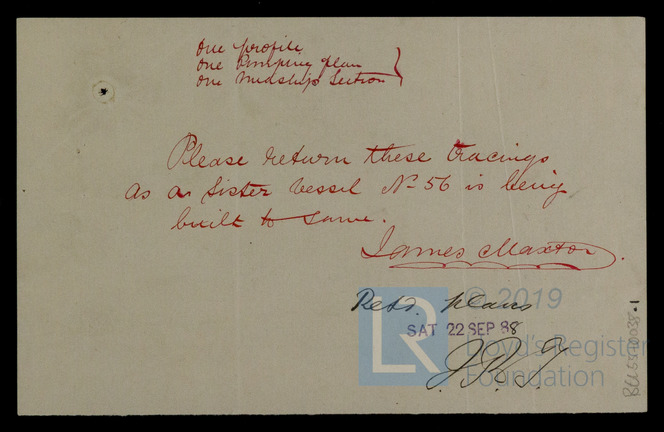 One profile
One Pumping plan
One Midship Section
Please return these tracings
as a sister vessel No 56 is being
built to same.
James Maxton
Retd. plans
SAT 22 SEP 88
J.R.T
LR © 2019
Lloyd's Register
Foundation